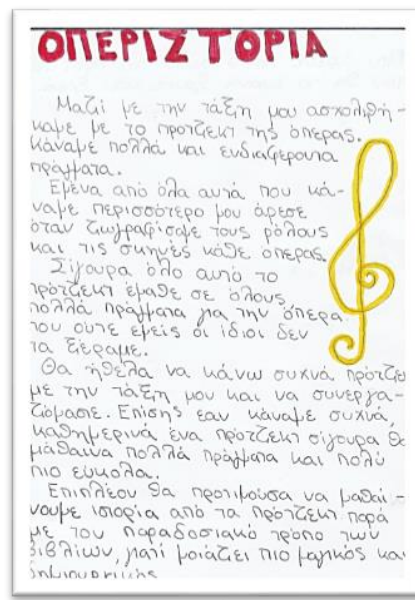 ΟΠΕΡΙΣΤΟΡΙΑ
Μαζί με την τάξη μου ασχολιθή-
καμε με το πρότζεκτ της όπερας.
Κάναμε πολλά και ενδιαφέροντα
πράγματα.
Εμένα από όλα αυτά που κά-
ναμε περισσότερο μου άρεσε
όταν ζωγραφίσαμε τους ρόλους
και τις σκηνές κάθε όπερας.
Σίγουρα όλο αυτό το
πρότζεκτ έμαθε σε όλους
πολλά πράγματα για την όπερα
που ούτε εμείς οι ίδιοι δεν
τα ξέραμε.
Θα ήθελα να κάνω συχνά πρότζε
με την τάξη μου και να συνεργα-
ζόμαστε. Επίσης εαν κάναμε συχνά,
καθημερινά ένα πρότζεκτ σίγουρα θα
μάθαινα πολλά πράγματα και πολύ
πιο εύκολα.
Επιπλέον θα προτιμούσα να μαθαί-
νουμε ιστορία από τα πρότζεκτ παρά
με τον παραδοσιακό τρόπο των
βιβλίων, γιατί μοιάζει πιο μαγικός και
δημιουργικός